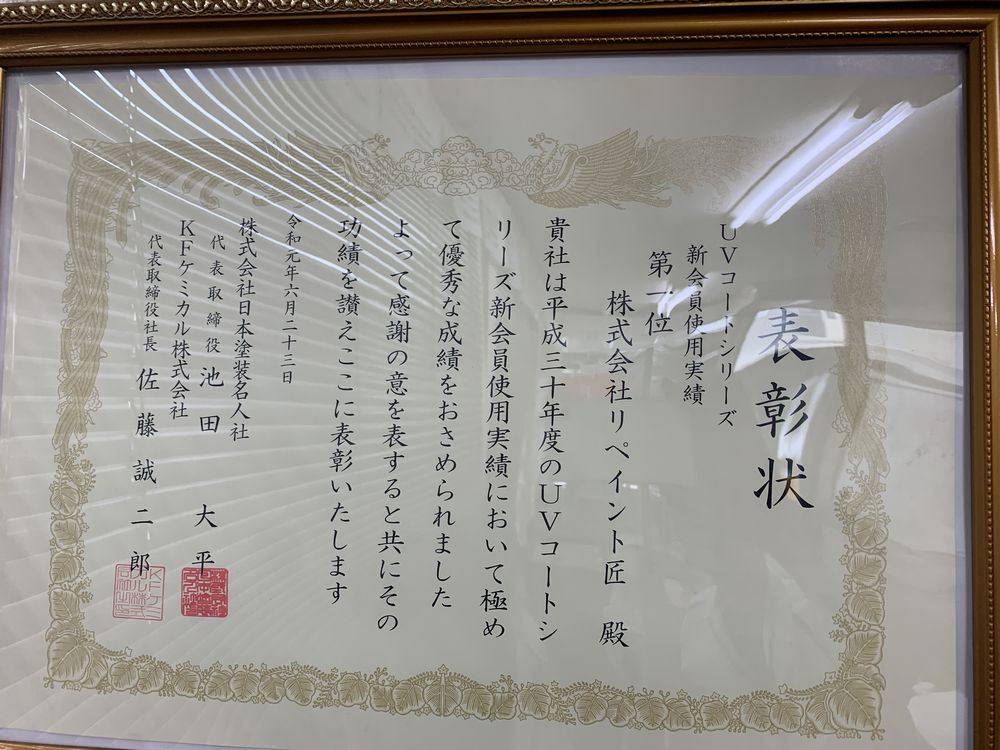 表彰状
UVコートシリーズ
新会員使用実績
第一位
株式会社リペイント匠 殿
貴社は平成三十年度のUVコートシ
リーズ新会員使用実績において極め
て優秀な成績をおさめられました
よって感謝の意を表すると共にその
功績を讃えここに表彰いたします
令和元年六月二十三日
株式会社日本塗装名人社
代表取締役 池田 大平
KFケミカル株式会社
代表取締役社長 佐藤誠二郎